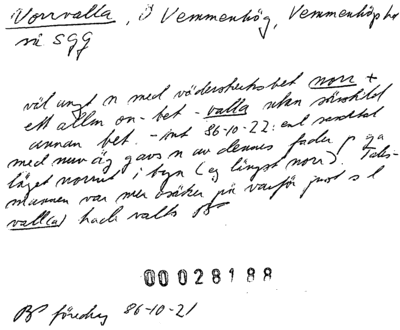 Norrvalla, Ö Vemmenhög, Vemmenhögs hd
sgg
väl ungt n med väderstrecksbet norr +
ett allm on-bet - valla utan särskild
annan bet. - int 86-10-22: enl samtal
med nuv äg gavs n av dennes fader p ga
läget norrut i byn (ej längst norr). Tales-
mannen var mer osäker på varför just s l
vall(a) hade valts BP
00028188
BP föredrag 86-10-21